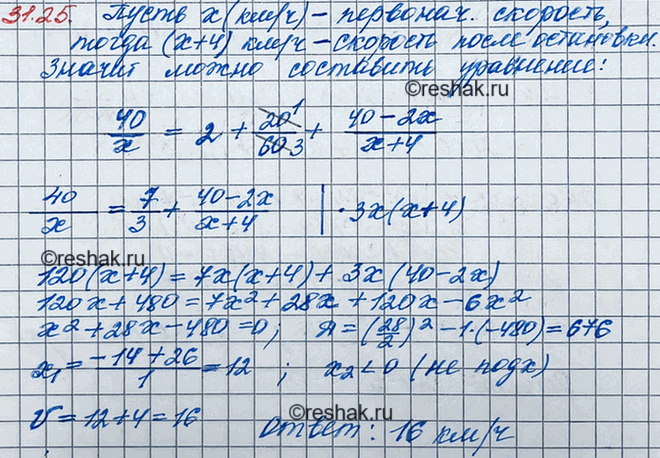 31.25. Пусть x (км/ч) – первонач. скорость,
©reshak.ru
тогда (x+4) км/ч – скорость после остановки.
Значит можно составить уравнение:
©reshak.ru
40/x = 2 + 20 1/60 3 + (40 – 2x)/(x+4)
40/x = 7/3 + (40 – 2x)/(x+4) | · 3x(x+4)
©reshak.ru
120(x+4) = 7x(x+4) + 3x(40 – 2x)
120x + 480 = 7x² + 28x + 120x – 6x²
x² + 28x – 480 = 0; Д = (28/2)² – 1·(–480) = 676
x₁ = (–14 + 26)/1 = 12 ; x₂ < 0 (не подх)
©reshak.ru
V = 12 + 4 = 16
Ответ: 16 км/ч